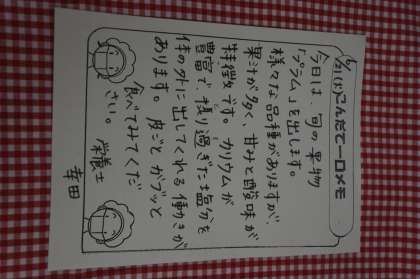 7/21(火)こんだて一口メモ
今日は、旬の果物
「プラム」を出します。
様々な品種がありますが、
果汁が多く、甘みと酸味が
特徴です。カリウムが
豊富で、摂り過ぎた塩分を
体の外に出してくれる働きが
あります。皮ごとガブッと
食べてみてくだ
さい。 栄養士
幸田